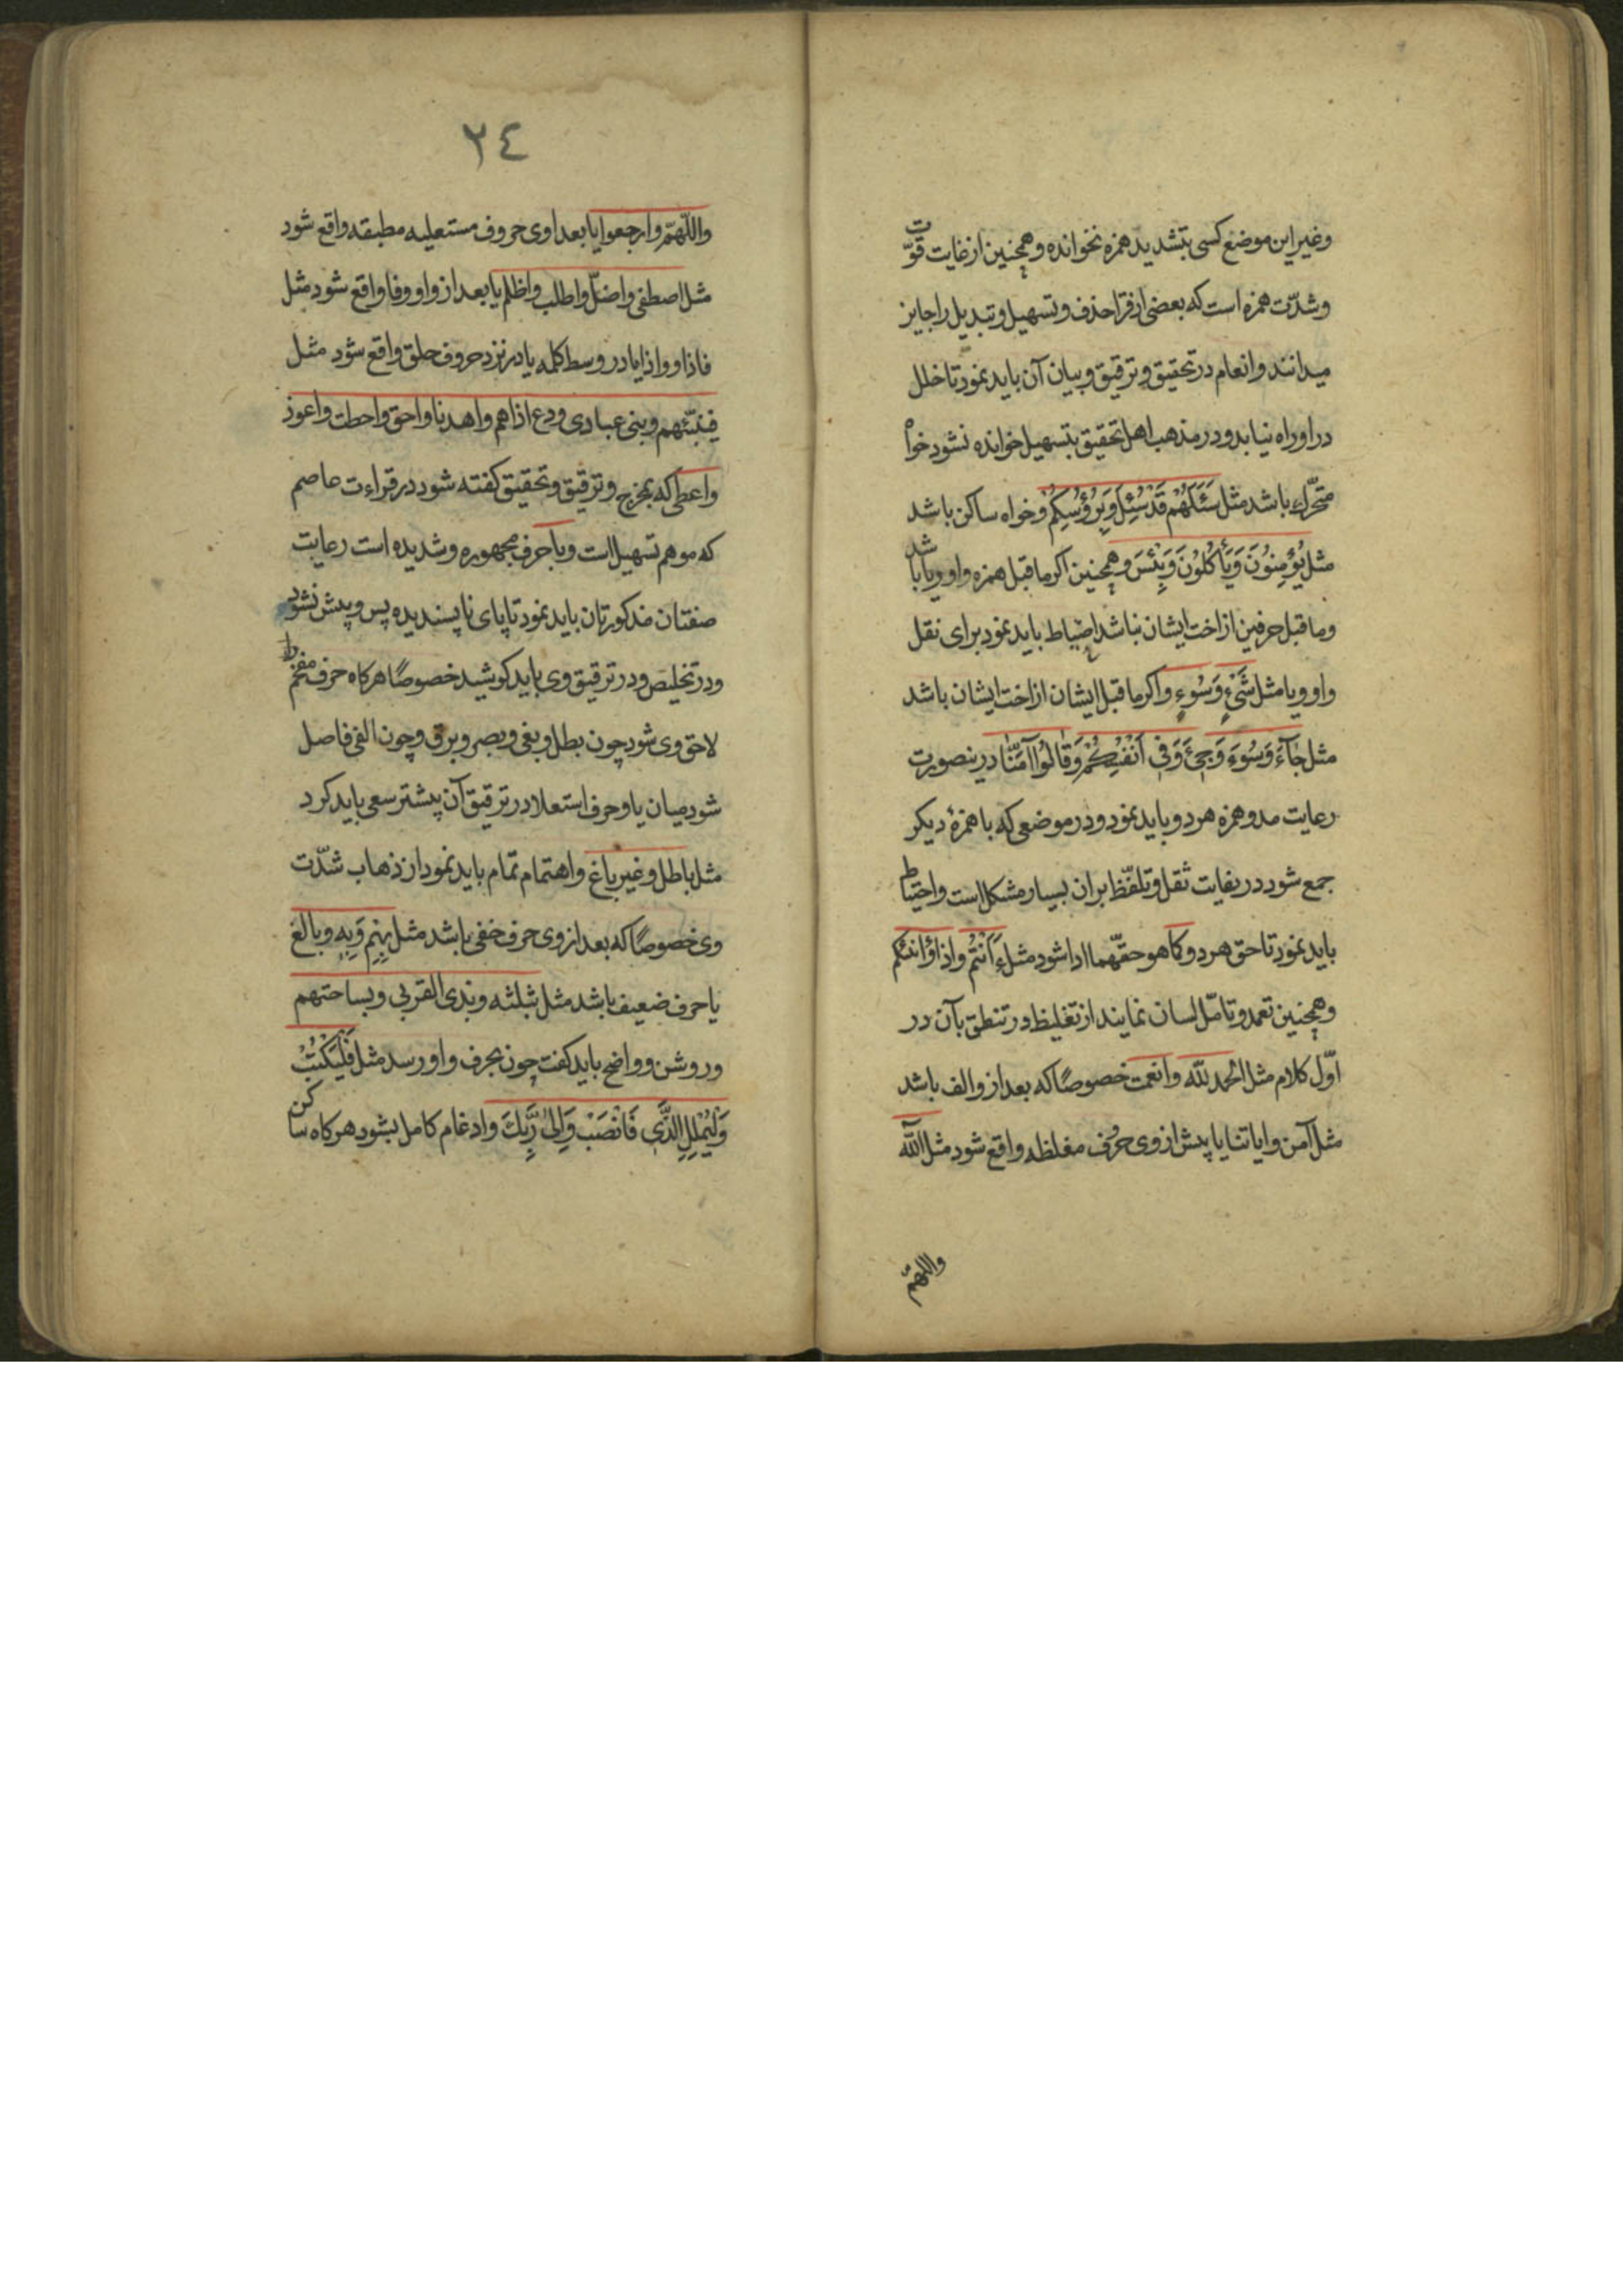 وغیر این موضع کسی بتشدید همزه نخوانده وهمچنین از غایت قوّت
وشدّت همزه است که بعضی از قرا حذف وتسهیل وتبدیل را جایز
میدانند وانعام در تحقیق وترقیق وبیان آن باید نمود تا خلل
در او راه نیابد ودر مذهب اهل تحقیق بتسهیل خوانده نشود خواه
متحرّك باشد مثل سَئَلَهُمْ قَدْ سُئِلَ وَبِرُؤُسِکُمْ وخواه ساکن باشد
مثل یُؤْمِنُونَ وَیَأْکُلُونَ وَبِئْسَ وهمچنین اکر ماقبل همزه واو ویا باشد
وماقبل حرفین از اخت ایشان نباشد احتیاط باید نمود برای نقل
واو ویا مثل شَیْءٍ وَسُوءٍ واکر ماقبل ایشان از اخت ایشان باشد
مثل جَآءَ وَسُوءَ وَجِیءَ وَفِی اَنْفُسِکُمْ وَقَالُوا آمَنَّا درینصورت
رعایت مد وهمزه هر دو باید نمود ودر موضعی که با همزهٔ دیکر
جمع شود در بغایت ثقل وتلفّظ بران بسیار مشکل است واحتیاط
باید نمود تا حق هر دو کما هو حقّهما ادا شود مثل ءَاَنْتُم واذا اؤانئکم
وهمچنین تعمد وتامّل لسان نمایند از تغلیظ در تنطق بآن در
اوّل کلام مثل الحمد للّه وانعمت خصوصًا که بعد از و الف باشد
مثل آمن وایاتنا یا پیش از وی حرف مغلظه واقع شود مثل اللّه
واللهمّ
٢٤
واللّهمّ وارجعوا یا بعد اوی حروف مستعلیه مطبقه واقع شود
مثل اصطفی واضلّ واطلب واظلم یا بعد از واو وفا واقع شود مثل
فاذا وواذا یا در وسط کلمه یا در نزد حروف حلق واقع شود مثل
فینبّئهم وبنی عبادی ودع اذاهم واهدنا واحق واحطت واعوذ
واعطی که بمخرج وترقیق وتحقیق کفته شود در قراءت عاصم
که موهم تسهیل است وبا حرف مجهوره وشدیده است رعایت
صفتان مذکورتان باید نمود تا پای ناپسندیده پس وپیش نشود
ودر تخلیص ودر ترقیق وی باید کوشید خصوصًا هرکاه حرف مفخم
لاحق وی شود چون بطل وبغی وبصر وبرق وچون الفی فاصل
شود میان با وحرف استعلا در ترقیق آن پیشتر سعی باید کرد
مثل باطل وغیر باغ واهتمام تمام باید نمود از ذهاب شدّت
وی خصوصًا که بعد از وی حرف خفی باشد مثل بِهِم وَبِهِ وبالغ
یا حرف ضعیف باشد مثل بثلثه وبذی القربی وبساحتهم
وروشن وواضح باید کفت چون بحرف واو رسد مثل فَلْیَکْتُبْ
وَلْیُمْلِلِ الَّذِی فَانْصَبْ وَاِلیٰ رَبِّكَ وادغام کامل بشود هرکاه ساکن